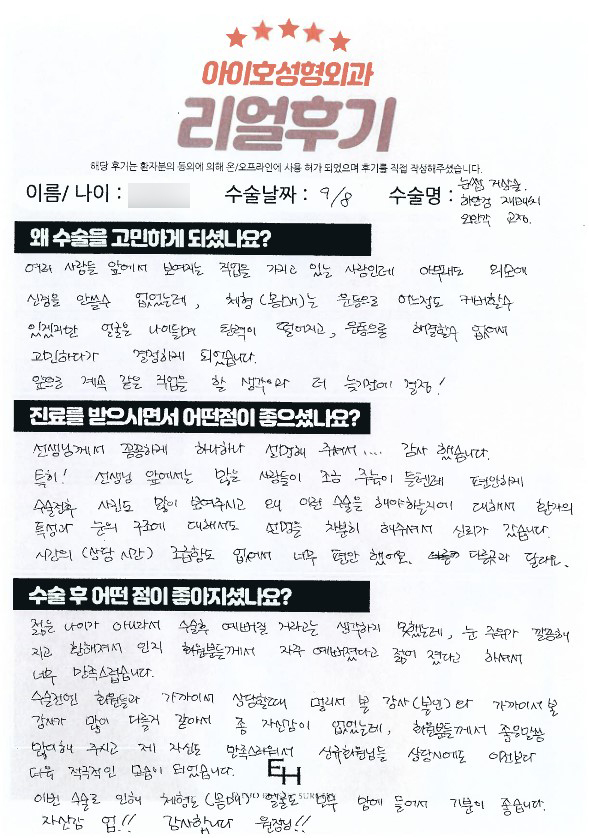 아이호성형외과
리얼후기
해당 후기는 환자분의 동의에 의해 온/오프라인에 사용 허가 되었으며 후기를 직접 작성해주셨습니다.
이름/ 나이 : 수술날짜 : 9/8 수술명 : 눈썹 거상술.
하안검 재배치
외안각 교정.
왜 수술을 고민하게 되셨나요?
여러 사람들 앞에서 보여지는 직업을 가지고 있는 사람인데 아무래도 외모에
신경을 안쓸수 없었는데, 체형(몸매)는 운동으로 어느정도 커버할수
있겠지만 얼굴은 나이들며 탄력이 떨어지고, 운동으로 해결할수 없어서
고민하다가 결정하게 되었습니다.
앞으로 계속 같은 직업을 할 생각이라 더 늦기전에 결정!
진료를 받으시면서 어떤점이 좋으셨나요?
선생님께서 꼼꼼하게 하나하나 설명해 주셔서.... 감사 했습니다.
특히! 선생님 앞에서는 많은 사람들이 조금 주눅이 들텐데 편안하게
수술전후 사진도 많이 보여주시고 왜 이런 수술을 해야하는지에 대해서 환자의
특성과 눈의 구조에 대해서도 설명을 차분히 해주셔서 신뢰가 갔습니다.
시간의 (상담 시간) 조급함도 없어서 너무 편안 했어요. 다른곳과 달라요.
수술 후 어떤 점이 좋아지셨나요?
젊은 나이가 아니라서 수술후 예뻐질 거라고는 생각하지 못했는데, 눈 주위가 깔끔해
지고 환해져서 인지 회원분들께서 자주 예뻐졌다고 젊어 졌다고 하셔서
너무 만족스럽습니다.
수술전엔 회원들과 가까이서 상담할때 멀리서 볼 감사(본인)와 가까이서 볼
감사가 많이 다를거 같아서 좀 자신감이 없었는데, 회원분들께서 좋은말씀
많이해 주시고 제 자신도 만족스러워서 신규회원님들 상담시에도 이전보다
더욱 적극적인 모습이 되었습니다.
EH
이번 수술로 인해 체형도 (몸매) 얼굴도 너무 맘에 들어서 기분이 좋습니다.
자신감 업!! 감사합니다 원장님!!